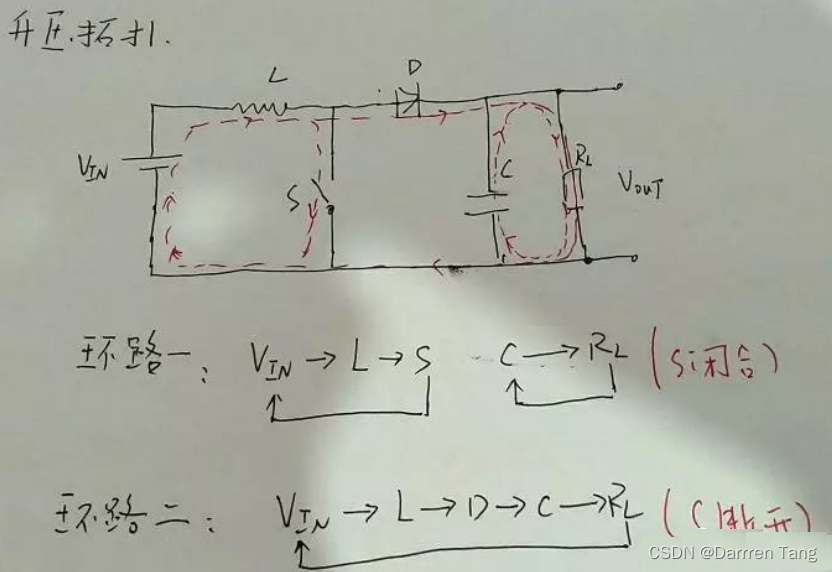 升压拓扑.
L
D
V_IN
S
C
R_L
V_OUT
环路一: V_IN → L → S C → R_L (S闭合)
环路二: V_IN → L → D → C → R_L (C断开)
CSDN @Darrren Tang